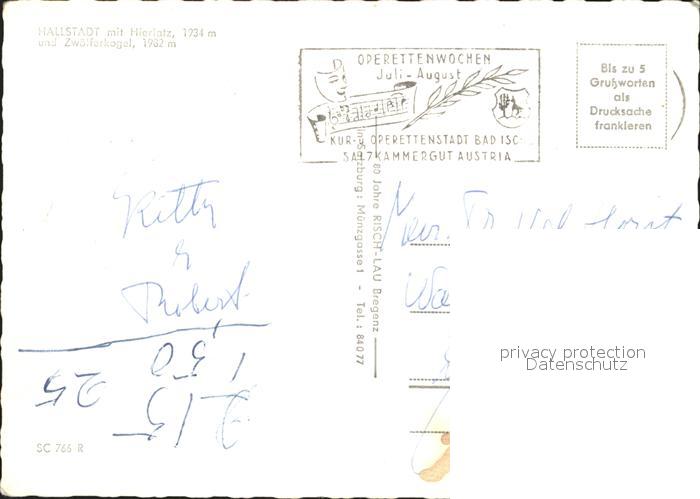 HALLSTADT mit Hierlatz, 1934 m
und Zwölferkogel, 1982 m
OPERETTENWOCHEN
Juli-August
KUR- u OPERETTENSTADT BAD ISC
SALZKAMMERGUT AUSTRIA
Bis zu 5
Grußworten
als
Drucksache
frankieren
80 Jahre RISCH-LAU Bregenz
in Salzburg: Münzgasse 1 - Tel.: 84077
Kitty
&
Robert
1,50
25
privacy protection
Datenschutz
SC 766 R